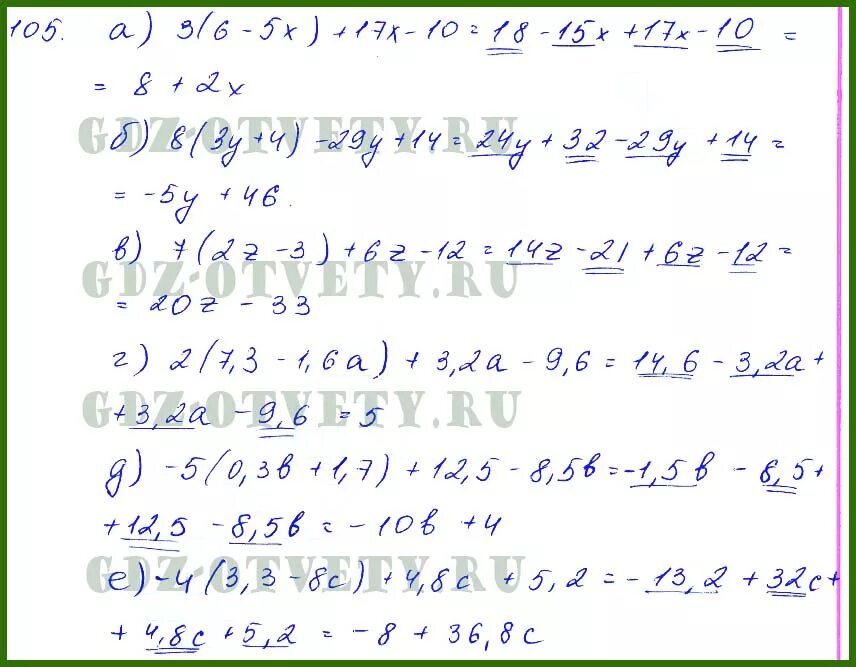 105. а) 3(6 - 5x) + 17x - 10 = 18 - 15x + 17x - 10 =
= 8 + 2x
GDZ-OTVETY.RU
б) 8(3y + 4) - 29y + 14 = 24y + 32 - 29y + 14 =
= -5y + 46.
в) 7(2z - 3) + 6z - 12 = 14z - 21 + 6z - 12 =
GDZ-OTVETY.RU
= 20z - 33
г) 2(7,3 - 1,6a) + 3,2a - 9,6 = 14,6 - 3,2a +
GDZ-OTVETY.RU
+ 3,2a - 9,6 = 5
д) -5(0,3b + 1,7) + 12,5 - 8,5b = -1,5b - 8,5 +
+ 12,5 - 8,5b = -10b + 4
GDZ-OTVETY.RU
е) -4(3,3 - 8c) + 4,8c + 5,2 = -13,2 + 32c +
+ 4,8c + 5,2 = -8 + 36,8c